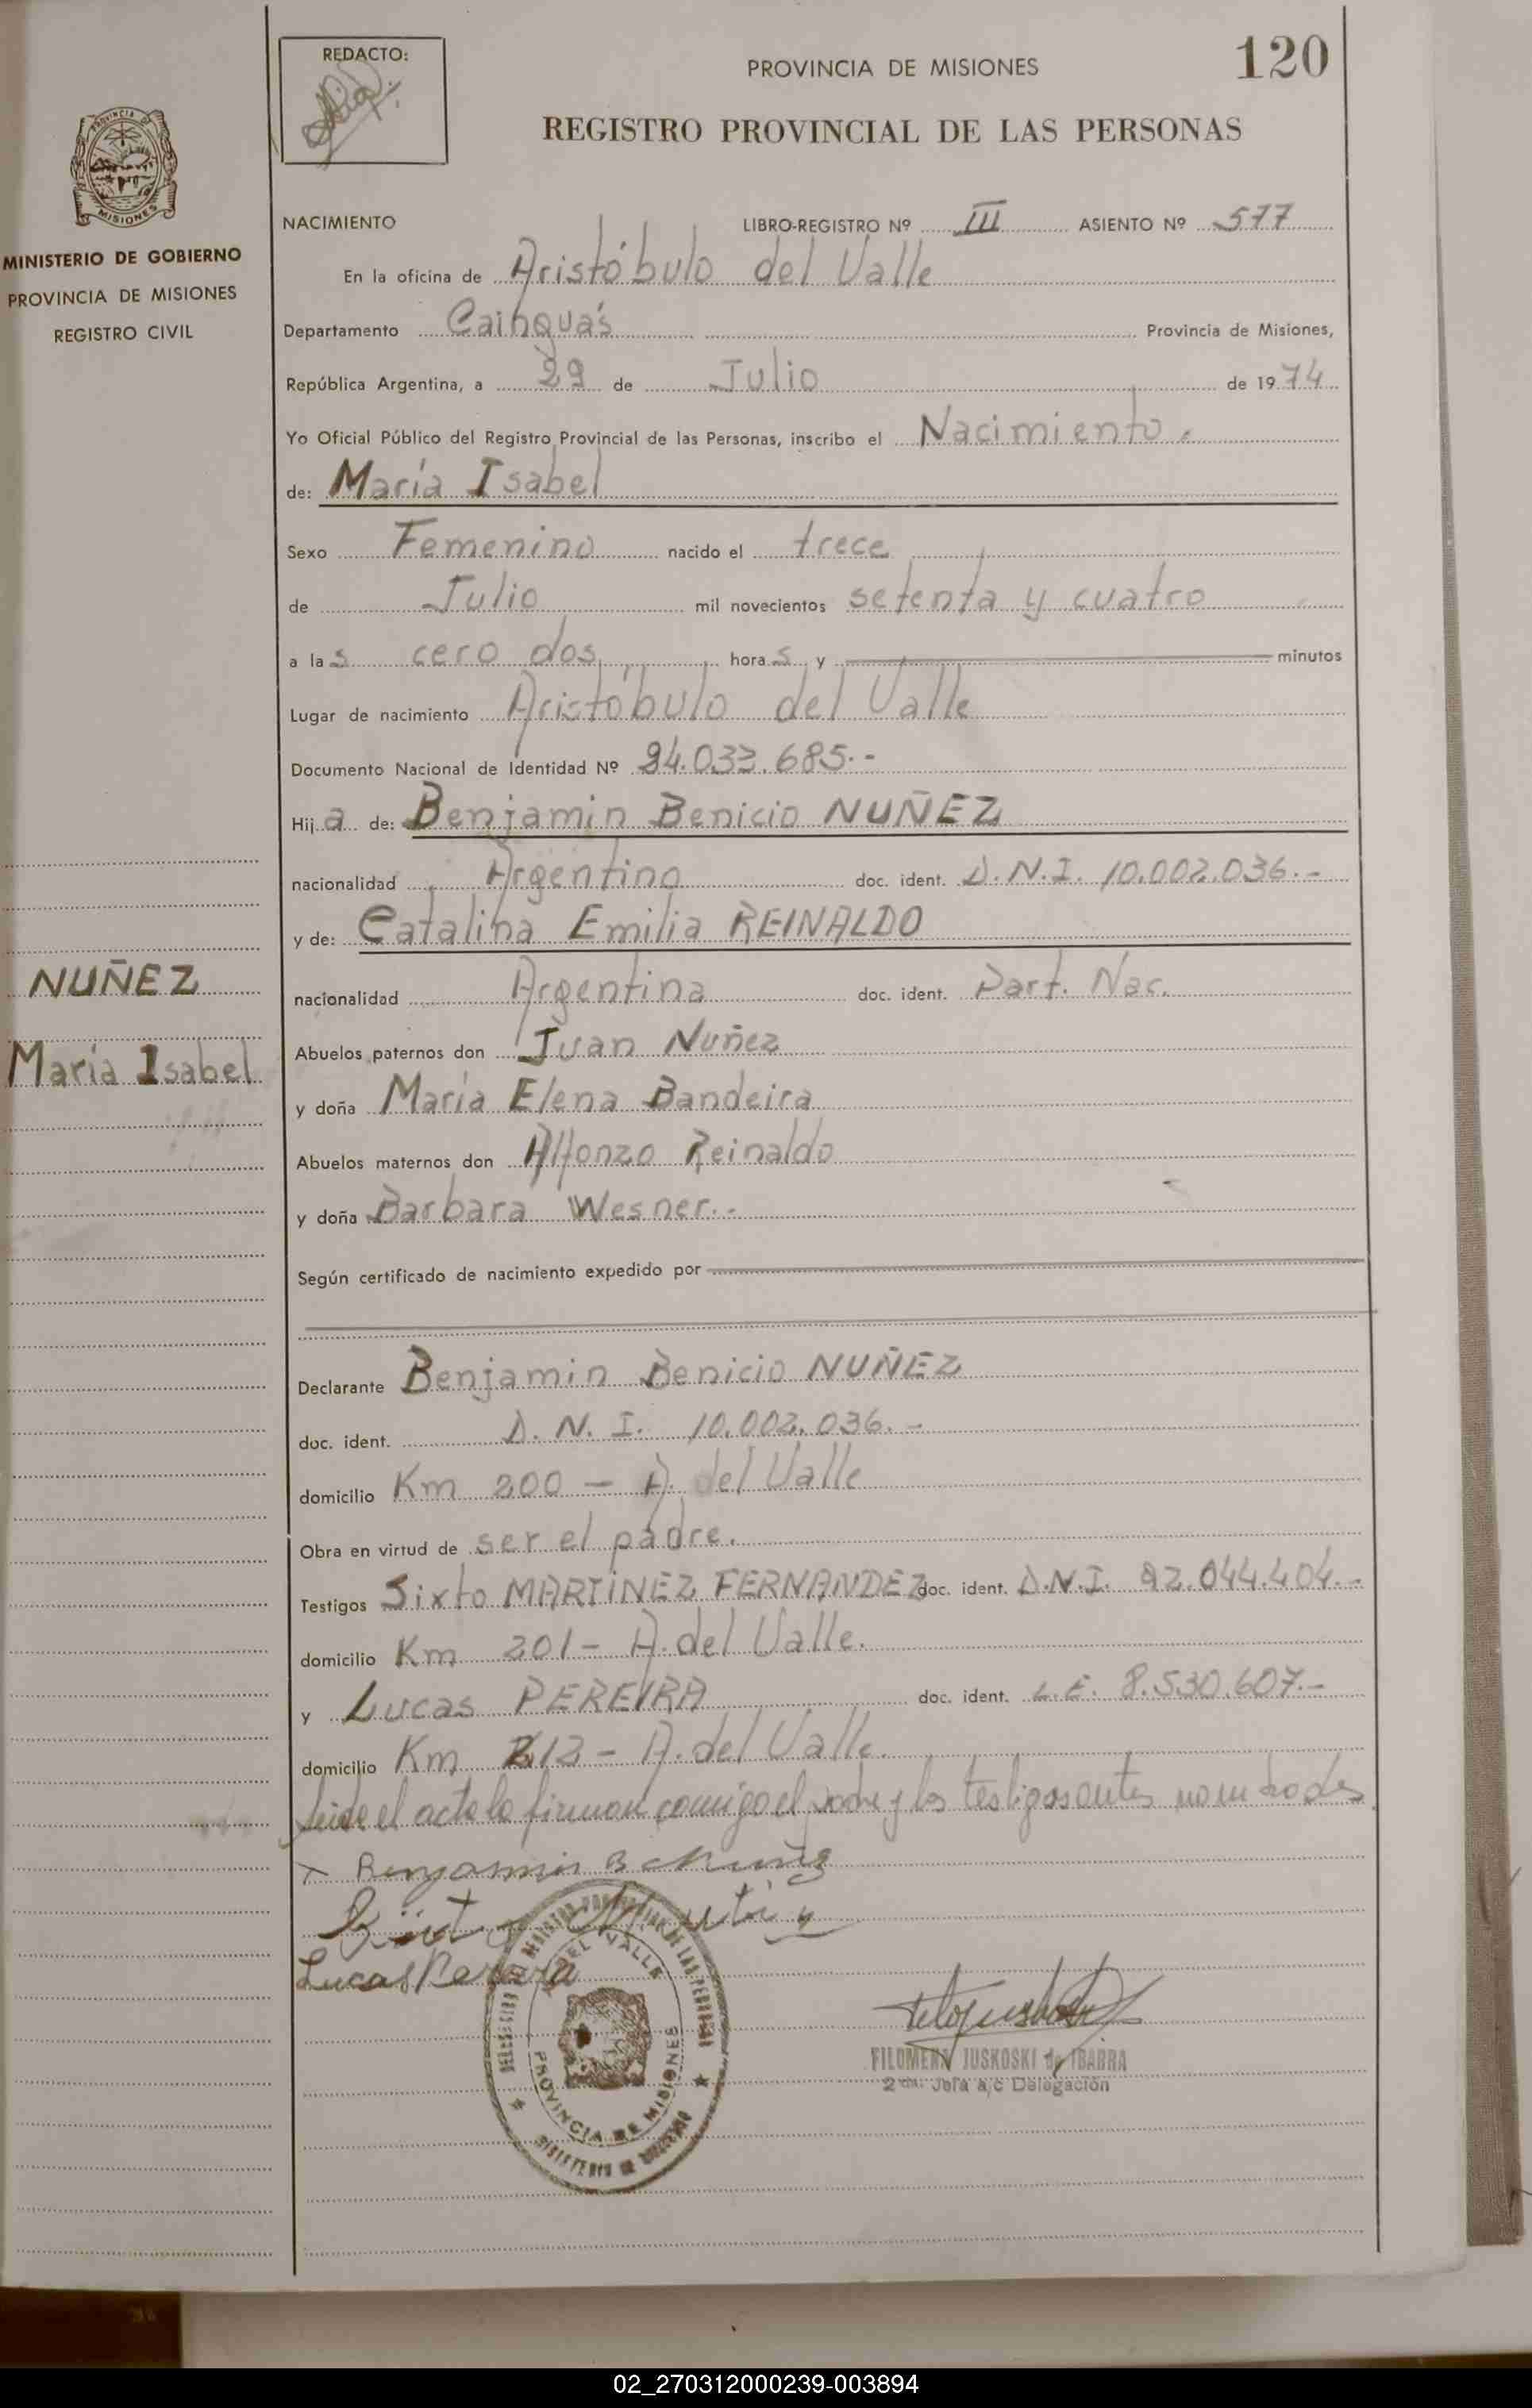 REDACTO:
PROVINCIA DE MISIONES
120
REGISTRO PROVINCIAL DE LAS PERSONAS
MISIONES
MINISTERIO DE GOBIERNO
PROVINCIA DE MISIONES
REGISTRO CIVIL
NACIMIENTO LIBRO-REGISTRO Nº III ASIENTO Nº 577
En la oficina de Aristóbulo del Valle
Departamento Cainguás Provincia de Misiones,
República Argentina, a 29 de Julio de 1974
Yo Oficial Público del Registro Provincial de las Personas, inscribo el Nacimiento.
de: María Isabel
Sexo Femenino nacido el trece
de Julio mil novecientos setenta y cuatro
a las cero dos horas y minutos
Lugar de nacimiento Aristóbulo del Valle
Documento Nacional de Identidad Nº 24.032.685.-
Hija de: Benjamin Benicio NUÑEZ
nacionalidad Argentino doc. ident. D.N.I. 10.002.036.-
y de: Catalina Emilia REINALDO
NUÑEZ
nacionalidad Argentina doc. ident. Part. Nac.
María Isabel
Abuelos paternos don Juan Nuñez
y doña María Elena Bandeira
Abuelos maternos don Alfonzo Reinaldo
y doña Barbara Wesner.-
Según certificado de nacimiento expedido por
Declarante Benjamin Benicio NUÑEZ
doc. ident. D.N.I. 10.002.036.-
domicilio Km 200 - A. del Valle
Obra en virtud de ser el padre.
Testigos Sixto MARTINEZ FERNANDEZ doc. ident. D.N.I. 92.044.404.-
domicilio Km 201- A. del Valle.
y Lucas PEREIRA doc. ident. L.E. 8.530.607.-
domicilio Km 212- A. del Valle.
Leida el acta la firman conmigo el padre y los testigos antes nombrados
Benjamin B Nuñez
Lucas Pereira
DEL VALLE
PROVINCIA DE MISIONES
FILOMENA JUSKOSKI de IBARRA
2da. Jefa a/c Delegación
02_270312000239-003894